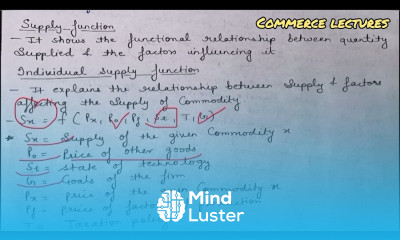 COMMERCE LECTURES
Supply function
- It shows the functional relationship between quantity
Supplied & the factors influencing it
Individual Supply function
- It explains the relationship between Supply & factors
affecting the Supply of Commodity
- Sx = f ( Px, Po, Pf, St, T, G)
* Sx = Supply of the given Commodity x
Po = Price of other goods
St = State of technology
G = Goals of the firm
Px = Price of the
x
Pf = prices of
T = Taxation
Mind
Luster